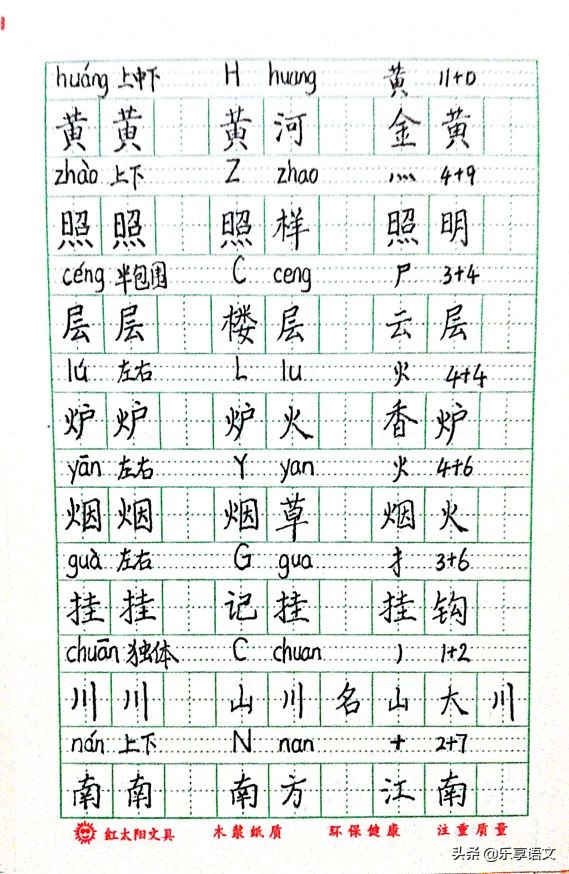 huáng 上中下 H huang 黄 11+0
黄 黄 黄 河 金 黄
zhào 上下 Z zhao 灬 4+9
照 照 照 样 照 明
céng 半包围 C ceng 尸 3+4
层 层 楼 层 云 层
lú 左右 L lu 火 4+4
炉 炉 炉 火 香 炉
yān 左右 Y yan 火 4+6
烟 烟 烟 草 烟 火
guà 左右 G gua 扌 3+6
挂 挂 记 挂 挂 钩
chuān 独体 C chuan 丿 1+2
川 川 山 川 名 山 大 川
nán 上下 N nan 十 2+7
南 南 南 方 江 南
红太阳文具 木浆纸质 环保健康 注重质量
头条 @乐享语文